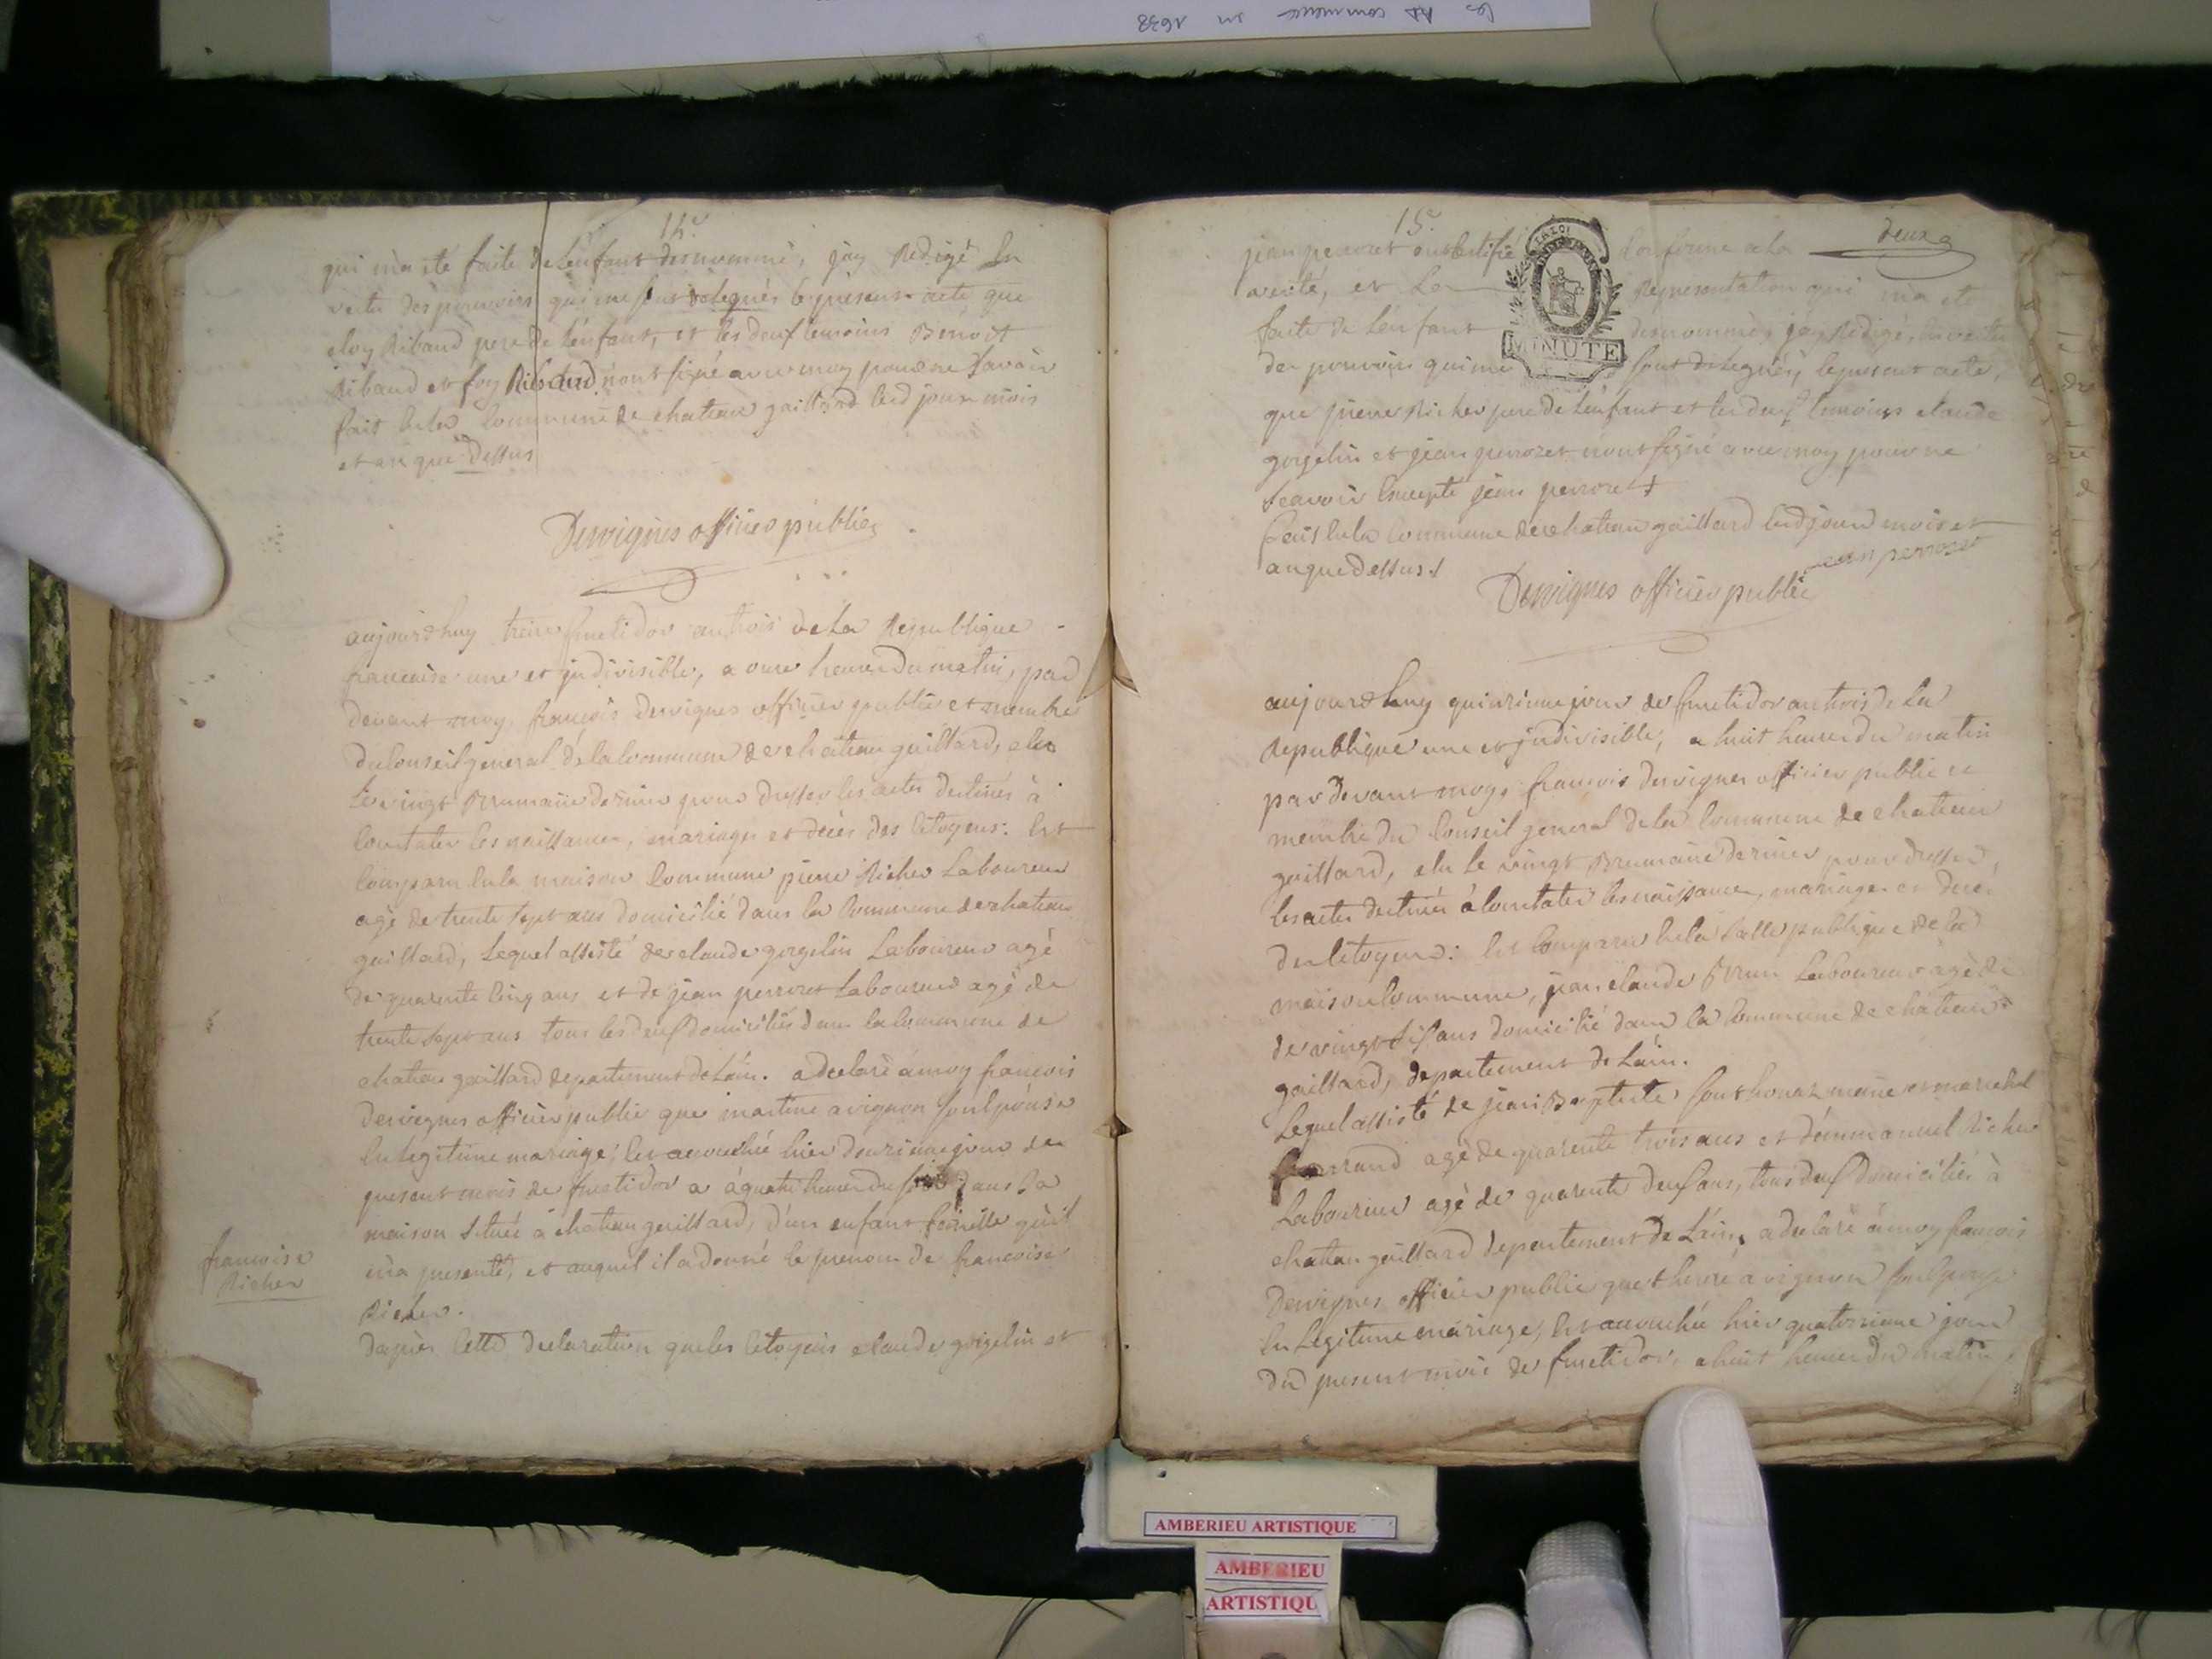 les AD commence en 1638
14e
qui m'a eté faite de l'enfant desnommé, j'ay Redigé En
vertu des pouvoirs qui me sont delegués le present acte que
eloy Ribaud pere de l'enfant, et les deux temoins Benoit
Ribaud et Ribaud n'ont signé avec moy pour ne savoir
fait En la Commune de chateau gaillard led jour mois
et an que Dessus
Dervignes officier public
aujourdhuy treize fructidor an trois de La Republique
francaise une et jndivisible, a onze heures du matin, par
devant moy françois dervignes officier public et membre
du Conseil general de la Commune de chateau gaillard, elu
Le vingt Brumaire dernier pour dresser les actes destinés à
Constater les naissances, mariages et décès des Citoyens: Est
Comparu En la maison Commune pierre Richer Laboureur
agé de trente sept ans domicilié dans la Commune de chateau
gaillard, Lequel assisté de claude gorgelin Laboureur agé
de quarente Cinq ans et de jean perrozet Laboureur agé de
trente sept ans tous les deux domiciliés dans la Commune de
chateau gaillard departement de L'ain. a declaré à moy francois
dervignes officier public que martine avignon son Epouse
En Legitime mariage, Est accouchée hier douzieme jour du
present mois de fructidor a quatre heures du soir dans sa
maison située à chateau gaillard, d'un enfant femelle qu'il
m'a presenté, et auquel il a donné le prenom de francoise
Richer.
francoise
Richer
d'après Cette declaration que les Citoyens claude gorgelin et
15e
deux
jean perrozet ont Certifié Conforme a la
verité, et La Representation qui m'a eté
faite de L'enfant desnommé, j'ay Redigé, En vertu
des pouvoirs qui me sont delegués, le present acte,
MINUTE
que pierre Richer pere de L'enfant et les deux temoins claude
gorgelin et jean perrozet n'ont signé avec moy pour ne
Scavoir Excepté jean perrozet
fait En la Commune de chateau gaillard led jour mois et
an que dessus.
jean perrozet
Dervignes officier public
aujourdhuy quinzieme jour de fructidor an trois de La
Republique une et jndivisible, a huit heures du matin
par devant moy, francois dervignes officier public et
membre du Conseil general de la Commune de chateau
gaillard, elu Le vingt Brumaire dernier pour dresser
les actes destinés à Constater les naissances, mariages et decès
des Citoyens: Est Comparu En la Salle publique de la
maison Commune, jean claude Brun Laboureur agé de
de vingt Six ans domicilié dans la Commune de chateau
gaillard, departement de L'ain.
Lequel assisté de jean Baptiste maire et marechal
ferrand agé de quarente trois ans et d'emmanuel Richer
Laboureur agé de quarente deux ans, tous deux domiciliés à
chateau gaillard departement de L'ain, a declaré à moy francois
Dervignes officier public que avignon son Epouse
En Legitime mariage, Est accouchée hier quatorzieme jour
du present mois de fructidor, a huit heures du matin,
AMBERIEU ARTISTIQUE
AMBERIEU
ARTISTIQU